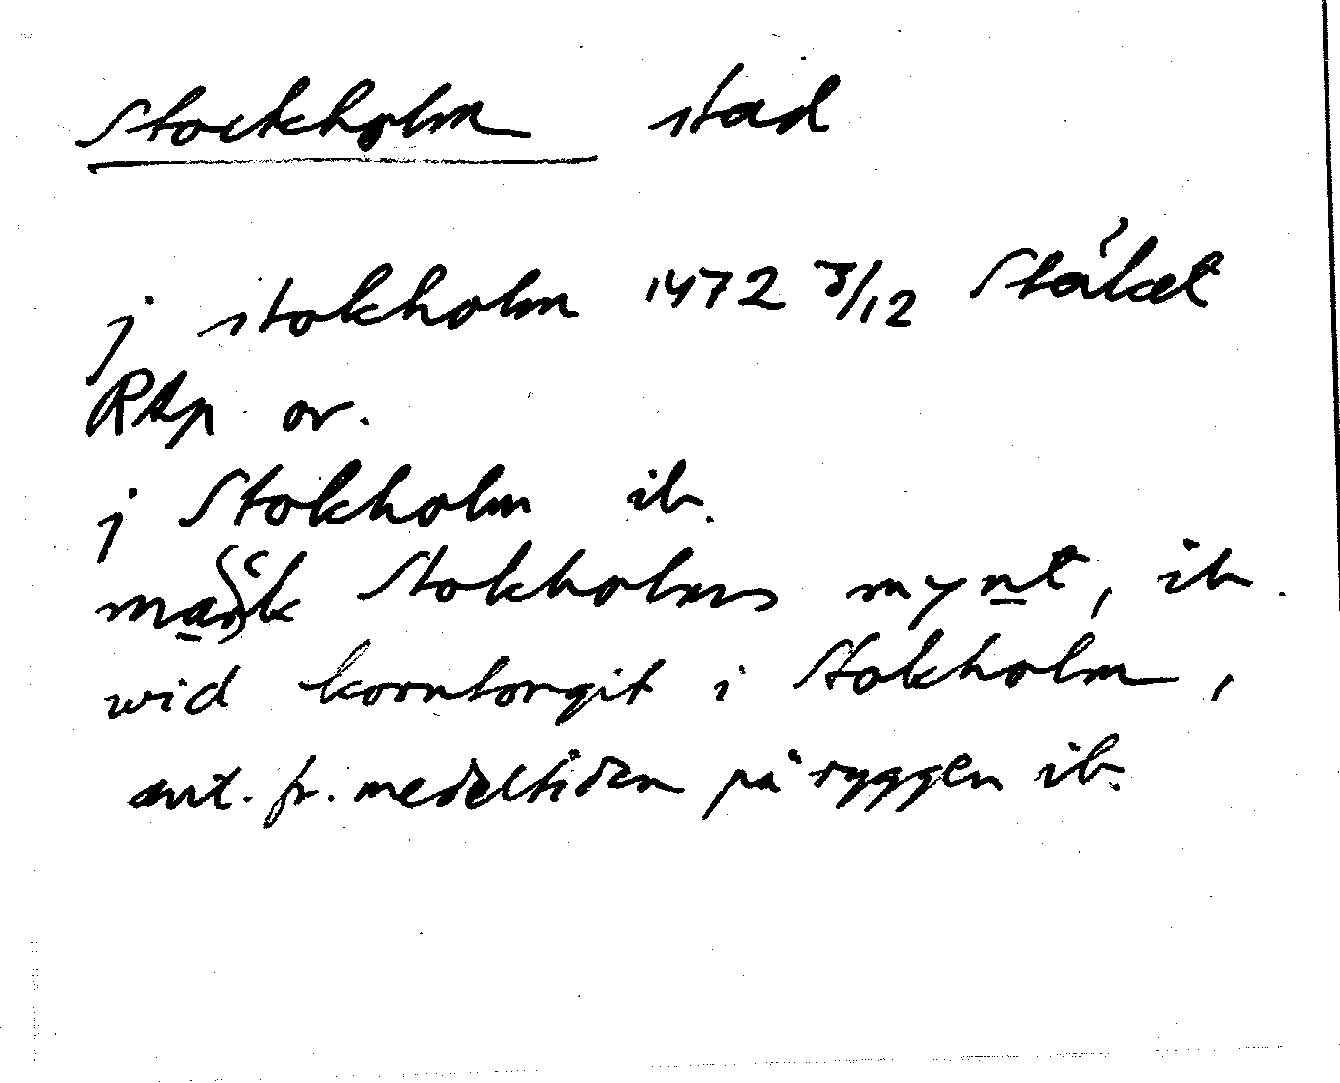 Stockholm stad
j stokholm 1472 3/12 Stäket
RAp or.
j Stokholm ib.
mark Stokholms mynt, ib.
wid korntorgit i Stokholm,
ant. fr. medeltiden på ryggen ib.